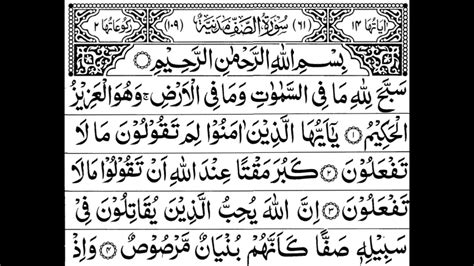 اٰيَاتُهَا ١٤ (٦١) سُوْرَةُ الصَّفِّ مَدَنِيَّةٌ (١٠٩) رُكُوْعَاتُهَا ٢
بِسْمِ اللّٰهِ الرَّحْمٰنِ الرَّحِيْمِ ۝
سَبَّحَ لِلّٰهِ مَا فِى السَّمٰوٰتِ وَمَا فِى الْاَرْضِ ۚ وَهُوَ الْعَزِيْزُ
الْحَكِيْمُ ۝١ يٰۤاَيُّهَا الَّذِيْنَ اٰمَنُوْا لِمَ تَقُوْلُوْنَ مَا لَا
تَفْعَلُوْنَ ۝٢ كَبُرَ مَقْتًا عِنْدَ اللّٰهِ اَنْ تَقُوْلُوْا مَا لَا
تَفْعَلُوْنَ ۝٣ اِنَّ اللّٰهَ يُحِبُّ الَّذِيْنَ يُقَاتِلُوْنَ فِىْ
سَبِيْلِهٖ صَفًّا كَاَنَّهُمْ بُنْيَانٌ مَّرْصُوْصٌ ۝٤ وَاِذْ